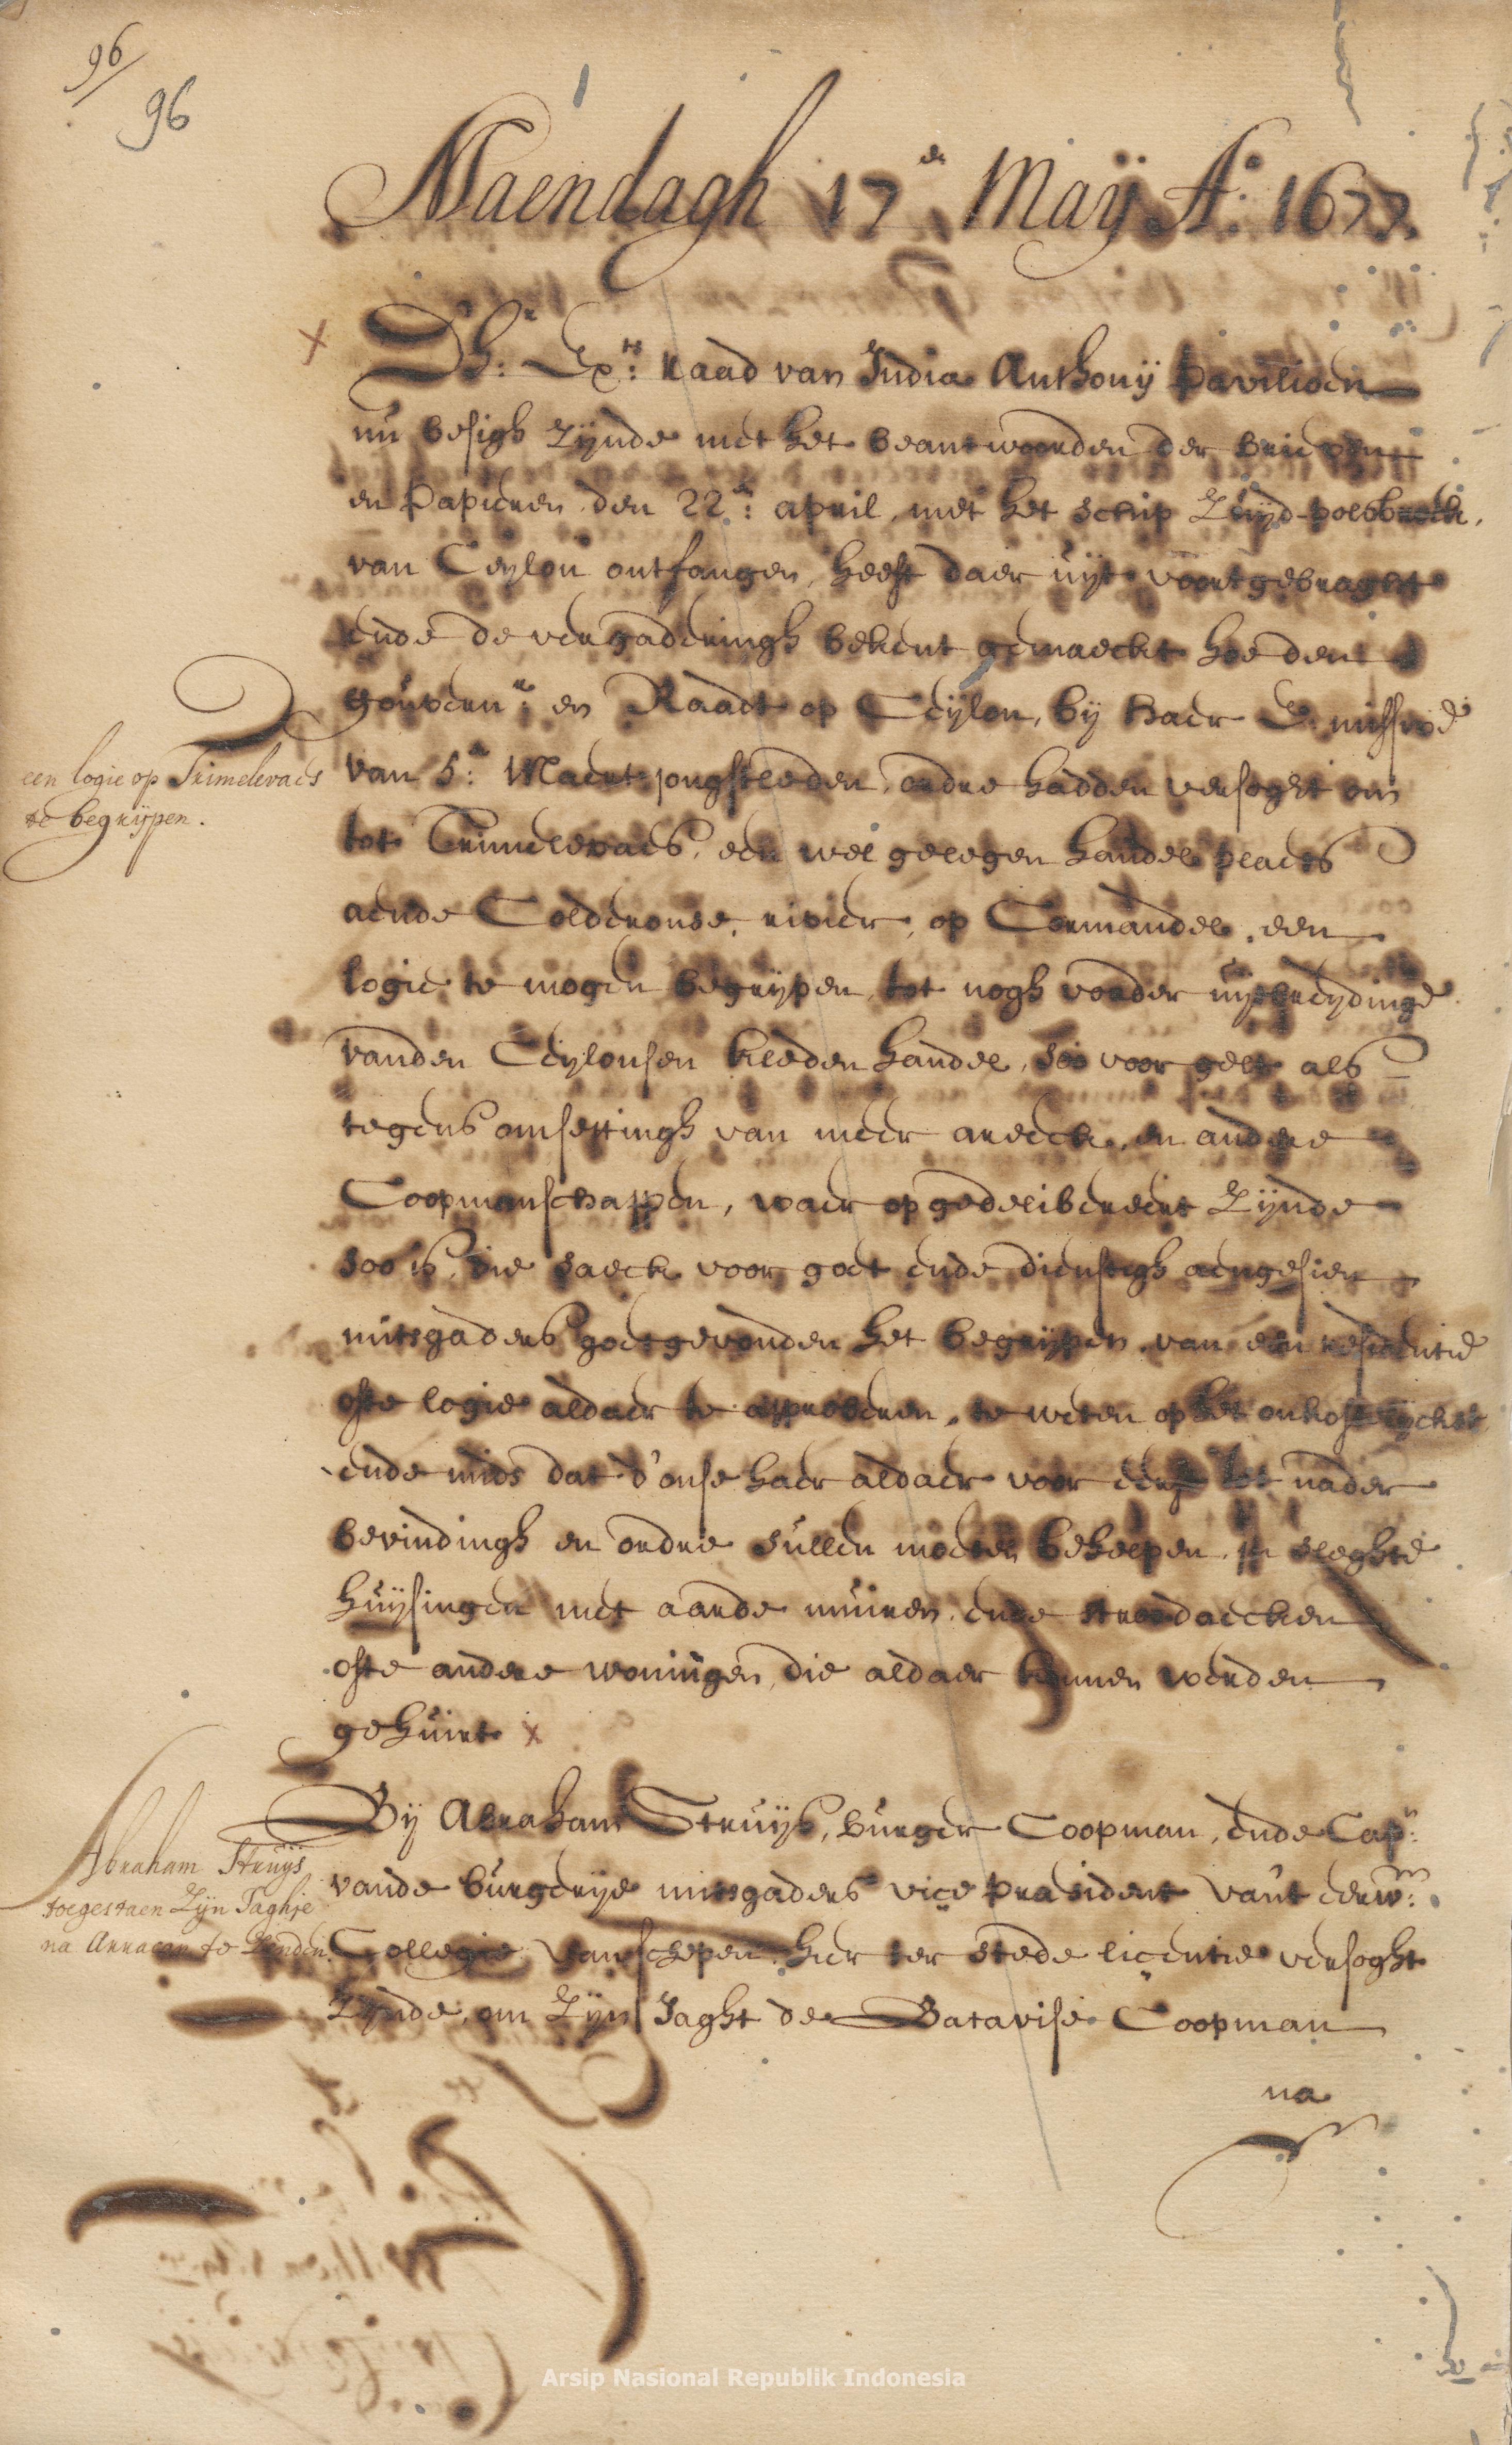 96/
96
Maendagh 17en Maij Ao. 1677.
Dhr. Exts. raad van India Anthonij Pavilioen
nu besigh zijnde met het beantwoorden der brieven
en Papieren den 22en: april, met het schip Zuijd-polsbroeck,
van Ceylon ontfangen, heeft daer uijt voortgebraght
ende de vergaderingh bekent gemaeckt hoe den
gouvernr. en Raadt op Ceijlon, bij haer E. missive
een logie op Trimelevaes
te begrijpen.
van 5en: Maert jongstleden, ordre hadden versoght om
tot Trimelevaes, een wel gelegen handel plaets
aende Colderonse, rivier, op Cormandel, een
logie te mogen begrijpen, tot nogh vorder uijtbreydinge
vanden Ceijlonsen kleden handel, soo voor gelt als
tegens omsettingh van meer areeck, en andere
Coopmanschappen, waer op gedelibereert zijnde
soo is, die saeck voor goet ende dienstigh aengesien
mitsgaders goetgevonden het begrijpen van een residentie
ofte logie aldaer te approberen, te weten op het onkostelijckste
ende mids dat d'onse haer aldaer voor eerst tot nader
bevindingh en ordre sullen moeten behelpen in sleghte
huijsingen met aarde muiren, ende stroodaecken
ofte andere woningen, die aldaer kennen werden
gehuirt
Bij Abraham Struijs, burger Coopman, ende Capn:
Abraham Struijs
toegestaen Zijn Jaghje
na Arracan te senden
vande burgerije mitsgaders vice president van't eerwm:
Collegie van schepen, hier ter stede licentie versoght
zijnde, om zijn Jaght de Batavise Coopman
na
Arsip Nasional Republik Indonesia